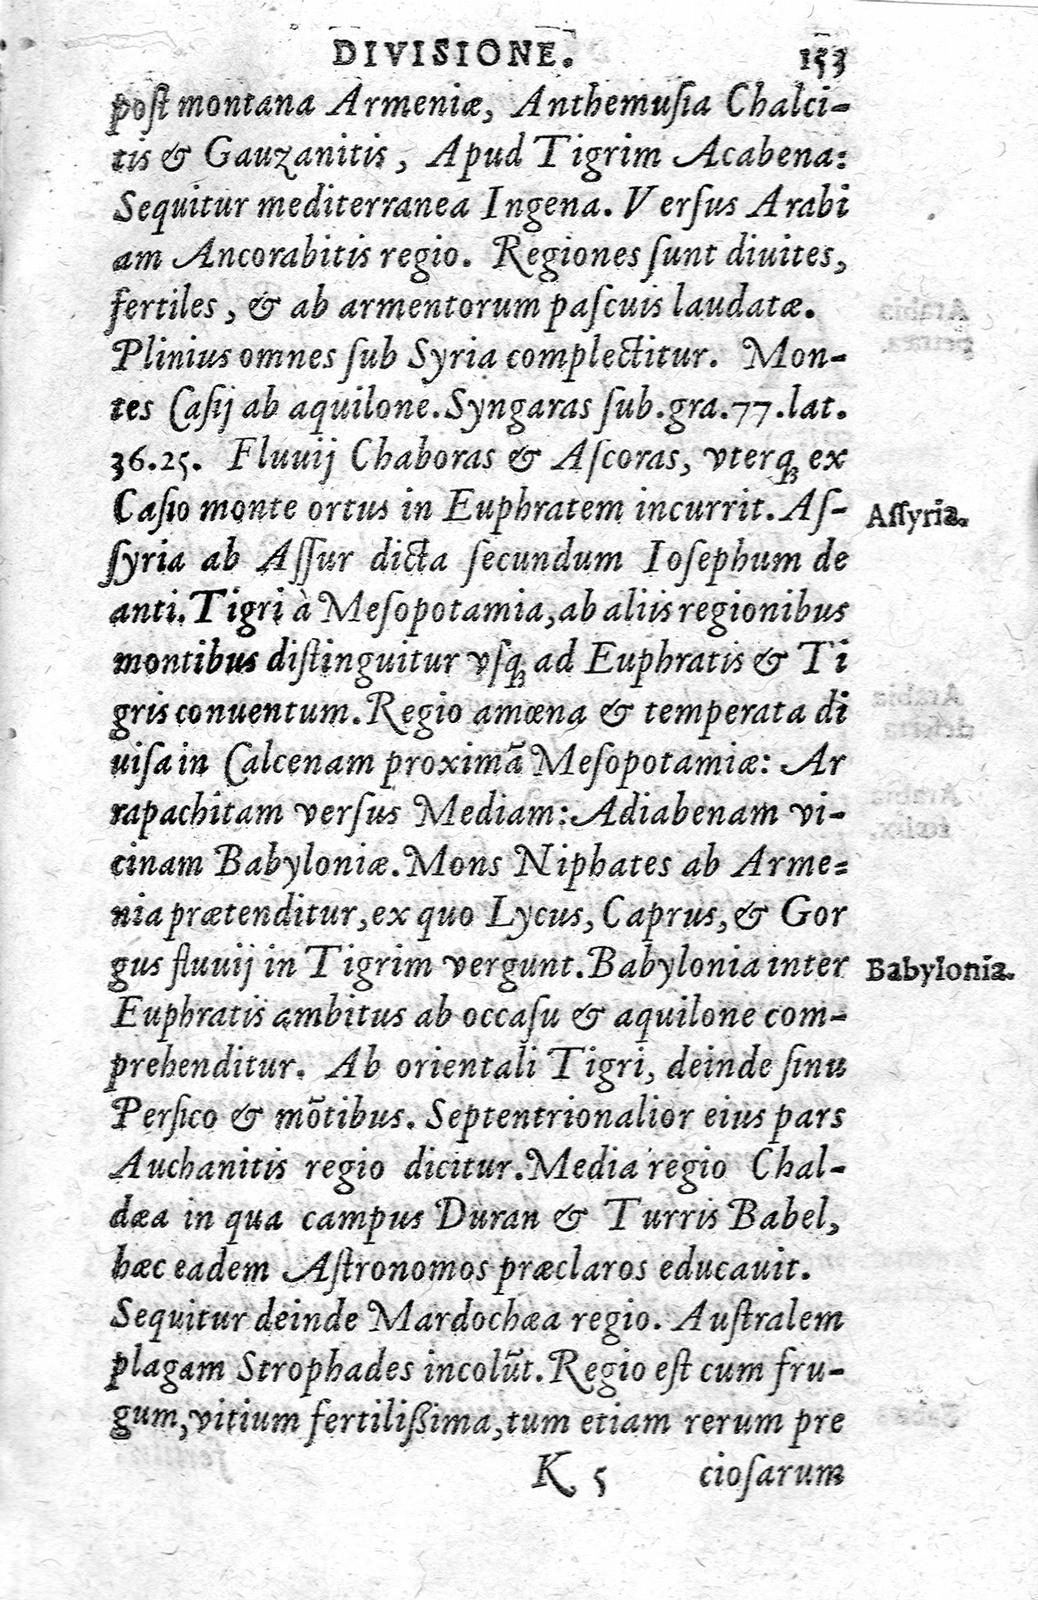 DIVISIONE. 153
post montana Armeniæ, Anthemusia Chalci-
tis & Gauzanitis, Apud Tigrim Acabena:
Sequitur mediterranea Ingena. V ersus Arabi
am Ancorabitis regio. Regiones sunt diuites,
fertiles, & ab armentorum pascuis laudatæ.
Plinius omnes sub Syria complectitur. Mon-
tes Casij ab aquilone. Syngaras sub.gra.77.lat.
36.25. Fluuij Chaboras & Ascoras, vterq; ex
Casio monte ortus in Euphratem incurrit. As-
Assyria.
syria ab Assur dicta secundum Iosephum de
anti. Tigri à Mesopotamia, ab aliis regionibus
montibus distinguitur vsq; ad Euphratis & Ti
gris conuentum. Regio amœna & temperata di
uisa in Calcenam proximā Mesopotamiæ: Ar
rapachitam versus Mediam: Adiabenam vi-
cinam Babyloniæ. Mons Niphates ab Arme=
nia prætenditur, ex quo Lycus, Caprus, & Gor
gus fluuij in Tigrim vergunt. Babylonia inter
Babylonia.
Euphratis ambitus ab occasu & aquilone com-
prehenditur. Ab orientali Tigri, deinde sinu
Persico & mōtibus. Septentrionalior eius pars
Auchanitis regio dicitur. Media regio Chal-
dæa in qua campus Duran & Turris Babel,
hæc eadem Astronomos præclaros educauit.
Sequitur deinde Mardochæa regio. Australem
plagam Strophades incolūt. Regio est cum fru-
gum, vitium fertilißima, tum etiam rerum pre
K 5 ciosarum